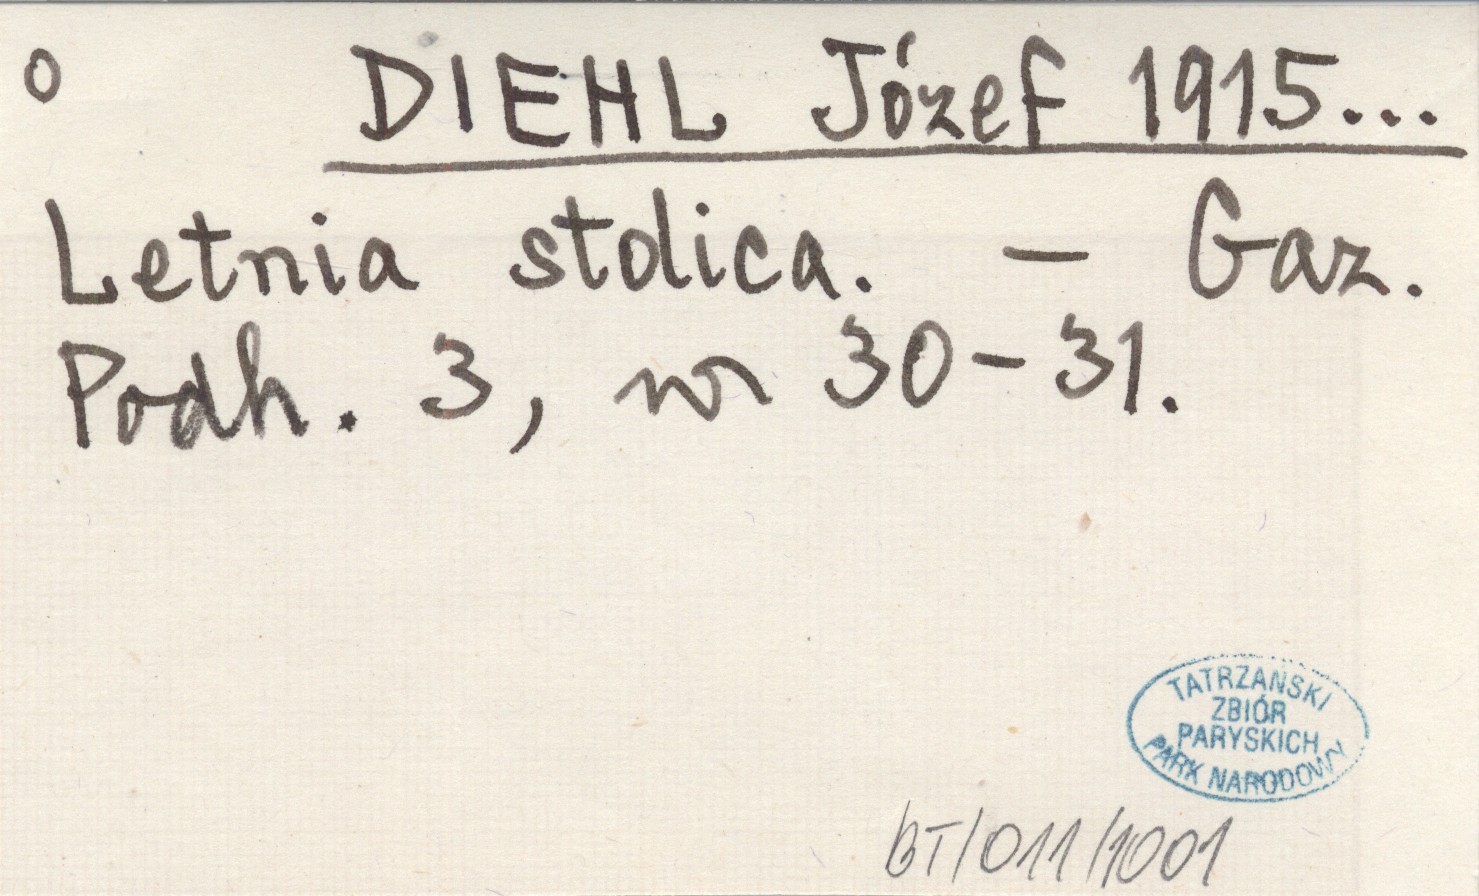 O DIEHL Józef 1915...
Letnia stolica. – Gaz.
Podh. 3, nr 30–31.
TATRZAŃSKI
ZBIÓR
PARYSKICH
PARK NARODOWY
BT/011/1001